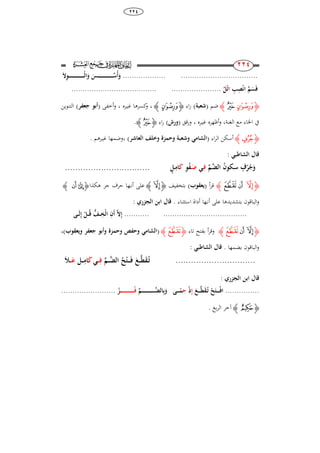 ٢٢٤
................................. .................. وَأُسِّـــسَ وَالْـــوِلَا
فَسَمِّ انْصِبْ اتْلُ ..................... ....................................
﴿وَرِضْوَانٍ خَيْرٌ﴾ ضم (شعبة) راء ﴿وَرِضْوَانٍ﴾، وكسرها غيره، وأخفى (أبو جعفر) التنوين
في الخاء مع الغنة، وأظهره غيره، ورقق (ورش) راء ﴿خَيْرٌ﴾.
﴿جُرُفٍ﴾ أسكن الراء (الشامي وشعبة وحمزة وخلف العاشر)، وضمها غيرهم .
قال الشاطبي :
وَجُرْفٍ سكونُ الضَّمِّ في صَفْوِ كَامِلٍ ..................................
﴿إِلَّا أَن تَقَطَّعَ﴾ قرأ (يعقوب) بتخفيف ﴿إِلَّا﴾ على أنها حرف جر هكذا ﴿إِلَى أَن﴾
والباقون بتشديدها على أنها أداة استثناء . قال ابن الجزري :
................................... ........... إِلَّا أَن الْخِـفُّ قُـلْ إِلَـى
﴿إِلَّا أَن تَقَطَّعَ﴾ وقرأ بفتح تاء ﴿تَقَطَّعَ﴾ (الشامي وحفص وحمزة وأبو جعفر ويعقوب)،
والباقون بضمها . قال الشاطبي :
................................ تُقَطَّعَ فَتْحُ الضَّمِّ في كَامِلٍ عَلَا
قال ابن الجزري :
............... افْـتَحْ تُقَطَّعَ إِذْ حَمَـى وَبِالضَّـــمِّ فُـــزْ ........................
﴿حَكِيمٌ﴾ آخر الربع .